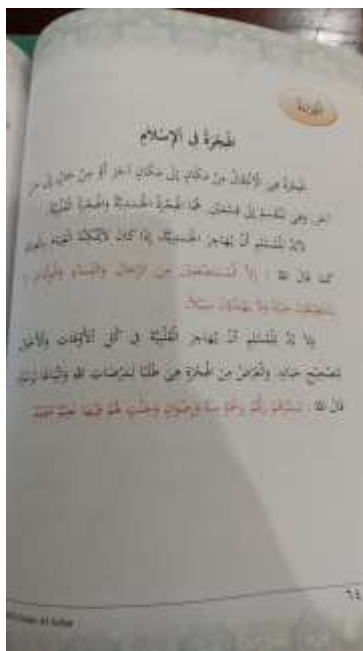 القراءة
الهِجْرَةُ فِي الْإِسْلَامِ
الهِجْرَةُ هِيَ الْاِنْتِقَالُ مِنْ مَكَانٍ إِلَى مَكَانٍ آخَرَ أَوْ مِنْ حَالٍ إِلَى حَالٍ
آخَرَ. وَهِيَ تَنْقَسِمُ إِلَى قِسْمَيْنِ هُمَا الهِجْرَةُ الْجَسَدِيَّةُ وَالهِجْرَةُ الْقَلْبِيَّةُ.
لَابُدَّ لِلْمُسْلِمِ أَنْ يُهَاجِرَ الْجَسَدِيَّةَ، إِذَا كَانَ لَا يُمْكِنُهُ
كَمَا قَالَ ﷲ : إِلَّا الْمُسْتَضْعَفِينَ مِنَ الرِّجَالِ وَالنِّسَاءِ وَالْوِلْدَانِ لَا
يَسْتَطِيعُونَ حِيلَةً وَلَا يَهْتَدُونَ سَبِيلًا.
وَلَا بُدَّ لِلْمُسْلِمِ أَنْ يُهَاجِرَ الْقَلْبِيَّةَ فِي كُلِّ الْأَوْقَاتِ وَالْأَحْوَالِ
لِتَصْحِيحِ حَيَاتِهِ. وَالْغَرَضُ مِنَ الهِجْرَةِ هِيَ طَلَبًا لِمَرْضَاتِ اللهِ وَاتِّبَاعًا
قَالَ ﷲ : يُبَشِّرُهُمْ رَبُّهُمْ بِرَحْمَةٍ مِنْهُ وَرِضْوَانٍ وَجَنَّاتٍ لَهُمْ فِيهَا نَعِيمٌ مُقِيمٌ
٦٤